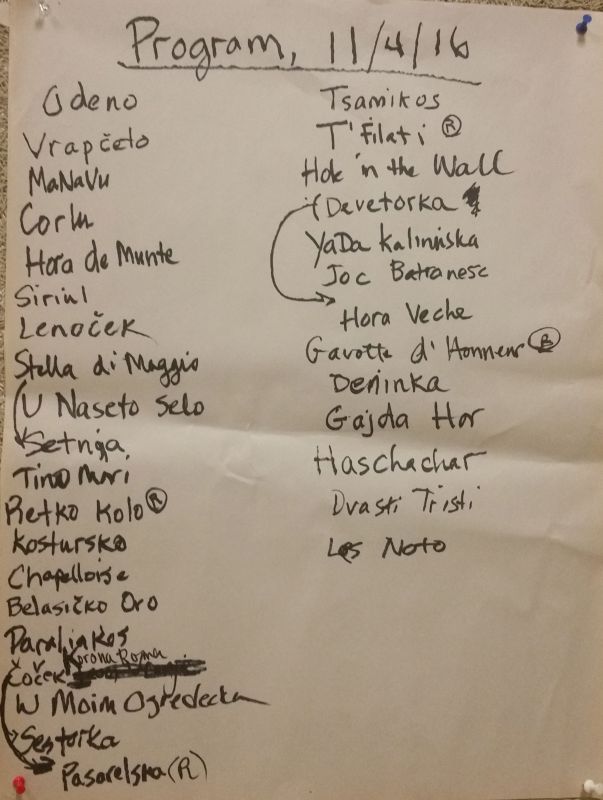 Program, 11/4/16
Odeno
Vrapčeto
MaNaVu
Corlu
Hora de Munte
Siriul
Lenoček
Stella di Maggio
U Naseto Selo
Setnja
Tino Mori
Retko Kolo Ⓡ
Kostursko
Chapelloise
Belasičko Oro
Daraljakos
Čoček Korona Roma
W Moim Ogredecka
Sestorka
Pasarelska (R)
Tsamikos
T'Filati Ⓡ
Hole in the Wall
Devetorka
YaDa Kalinuska
Joc Batranesc
Hora Veche
Gavotte d'Honneur Ⓡ
Deninka
Gajda Hor
Haschachar
Dvasti Tristi
Los Noto